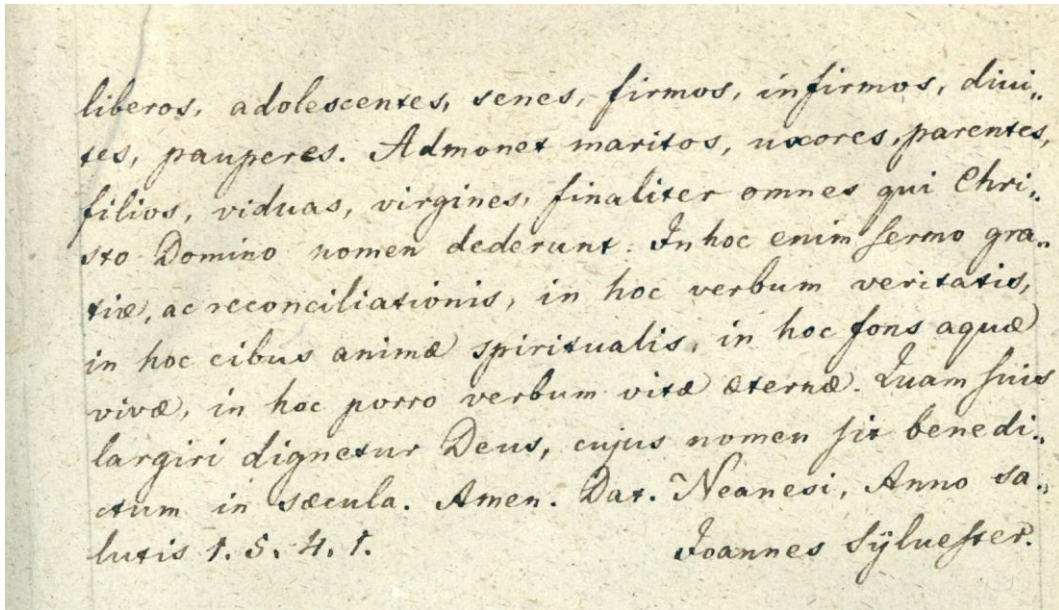 liberos, adolescentes, senes, firmos, infirmos, divi„
tes, pauperes. Admonet maritos, uxores, parentes,
filios, viduas, virgines, finaliter omnes qui Chri„
sto Domino nomen dederunt. In hoc enim sermo gra„
tiæ, ac reconciliationis, in hoc verbum veritatis,
in hoc cibus animæ spiritualis, in hoc fons aquæ
vivæ, in hoc porro verbum vitæ æternæ. Quam suis
largiri dignetur Deus, cujus nomen sit benedi„
ctum in sæcula. Amen. Dat. Neanesi, Anno sa„
lutis 1. 5. 4. 1. Joannes Sÿluester.